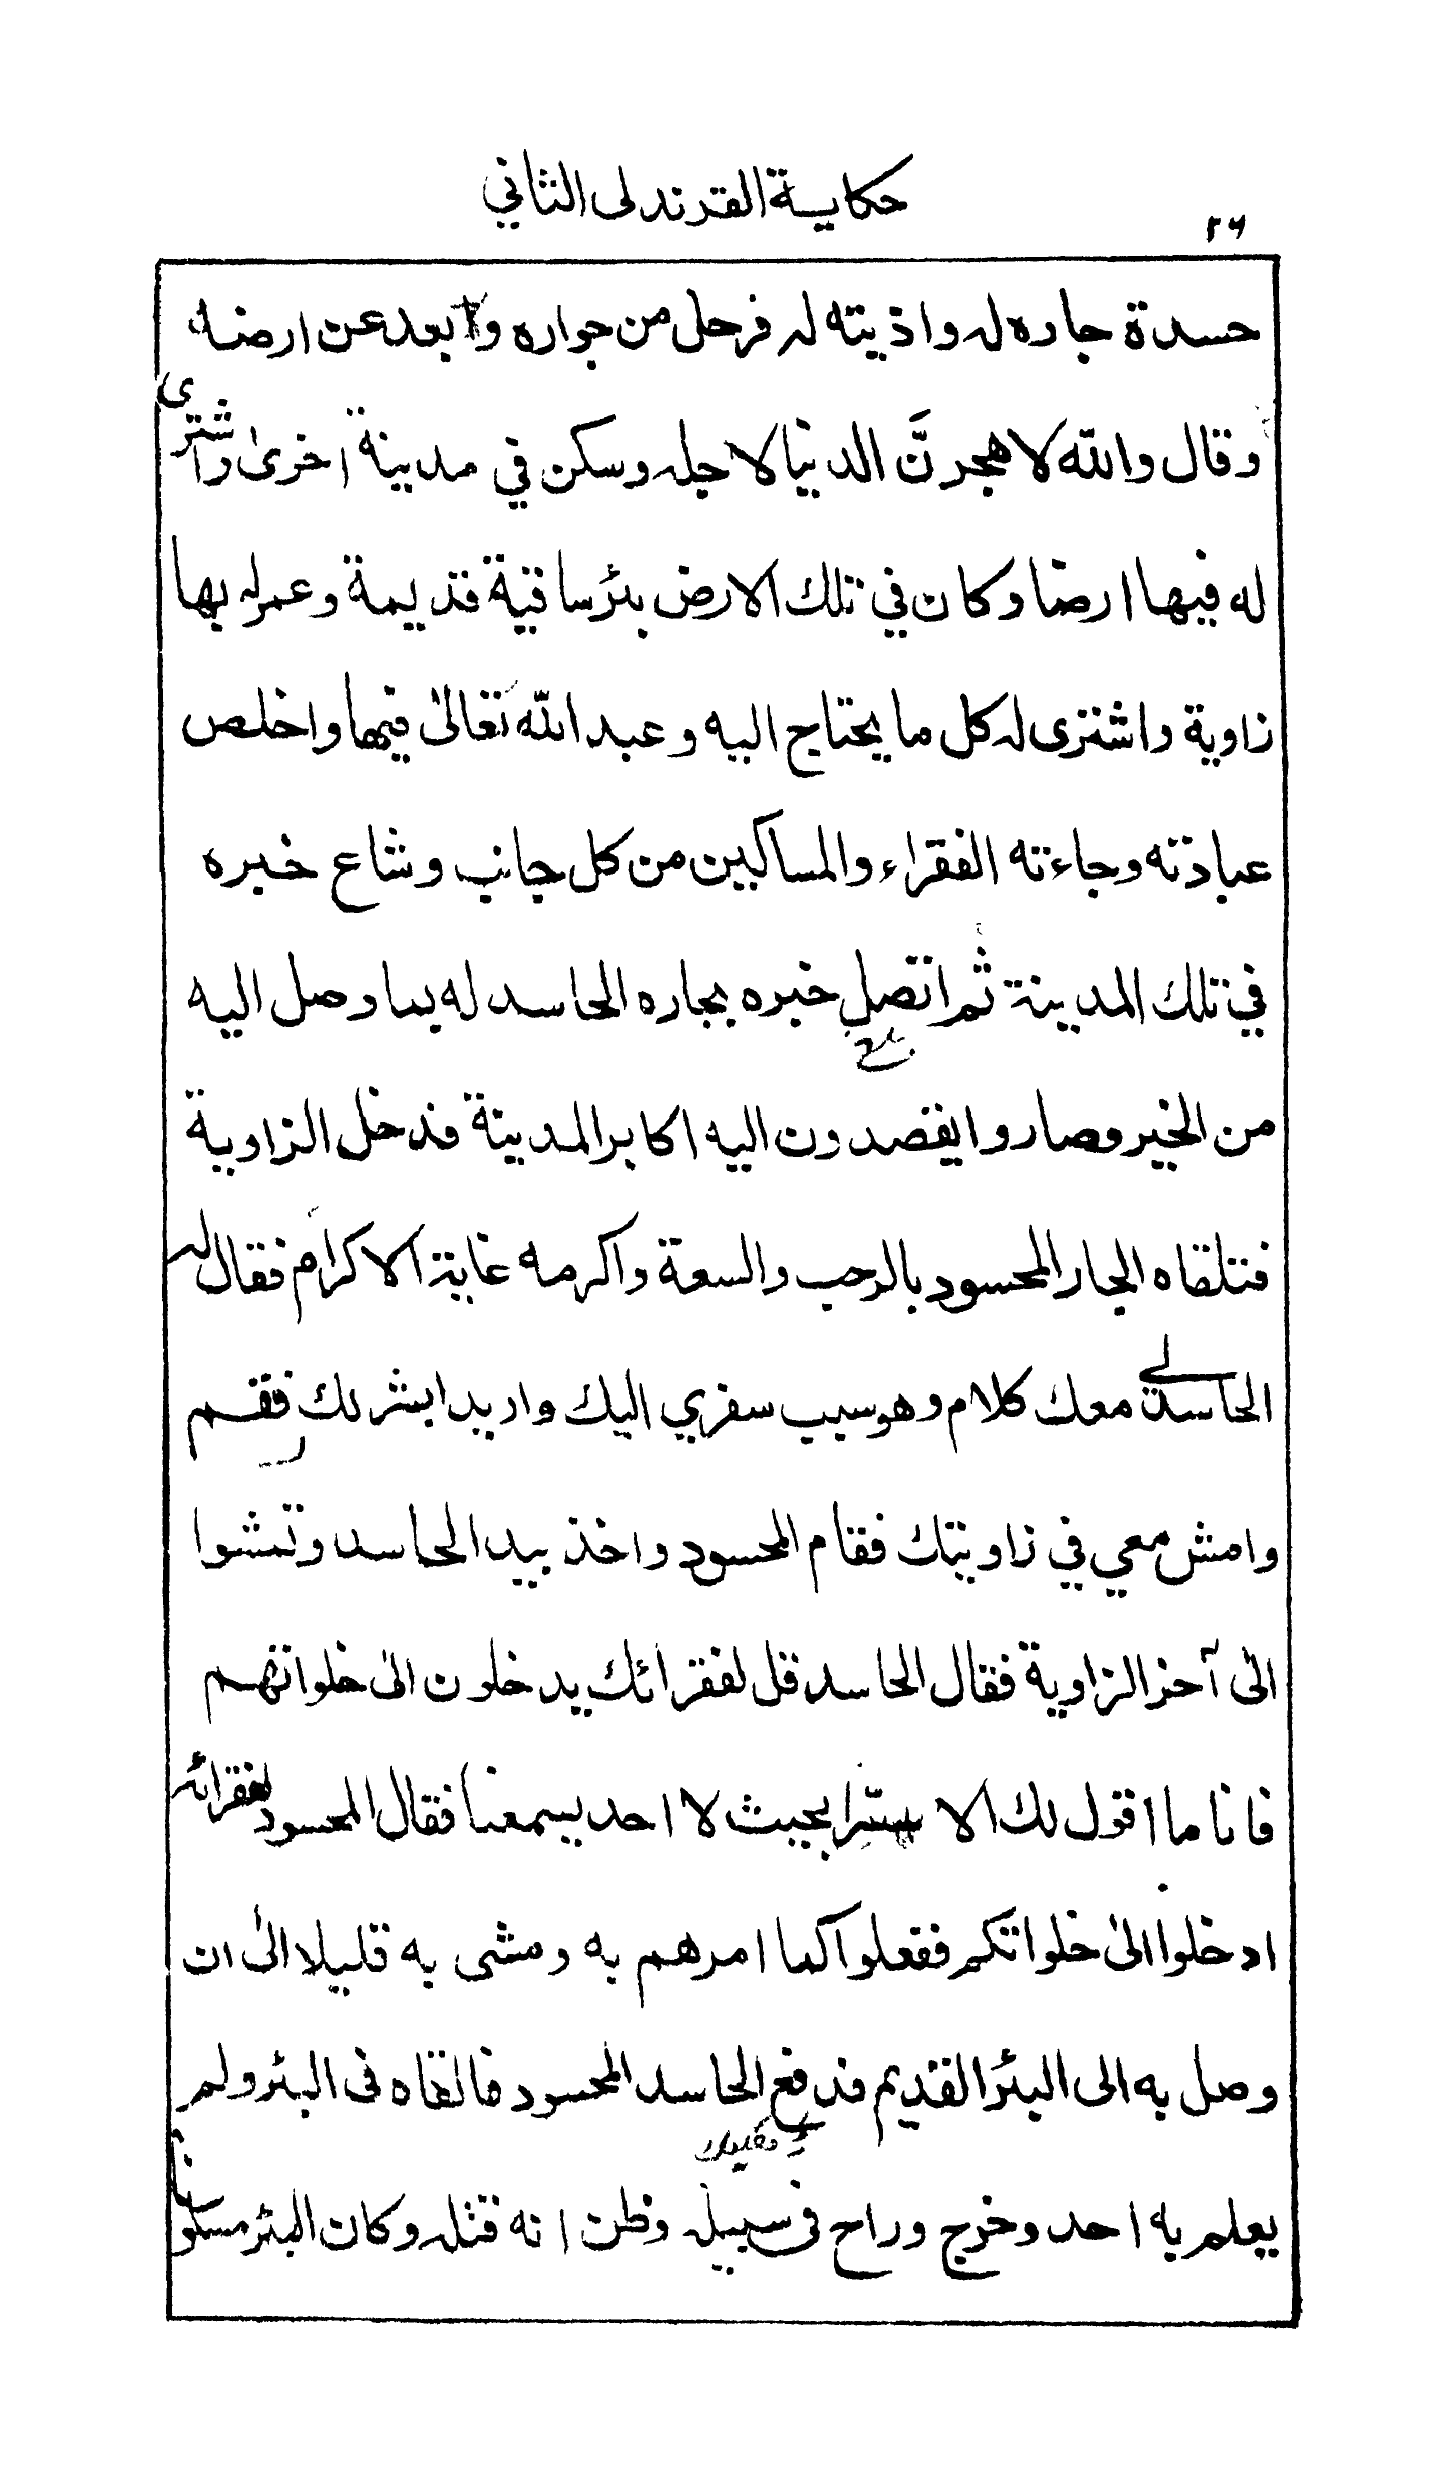 حكاية القرندلى الثاني
٢٦
حسدة جاره له واذيته له فرحل من جواره وابعد عن ارضه
وقال والله لاهجرنَّ الدنيا لاجله وسكن في مدينة اخرى واشترى
له فيها ارضا وكان في تلك الارض بئر ساقية قديمة وعمر له بها
زاوية واشترى له كل ما يحتاج اليه وعبد الله تعالى فيها واخلص
عبادته وجاءته الفقراء والمساكين من كل جانب وشاع خبره
في تلك المدينة ثم اتصل خبره بجاره الحاسد له بما وصل اليه
من الخير وصاروا يقصدون اليه اكابر المدينة فدخل الزاوية
فتلقاه الجار المحسود بالرحب والسعة واكرمه غاية الاكرام فقال له
الحاسد لي معك كلام وهو سبب سفري اليك واريد ابشرك فقم
وامش معي في زاويتك فقام المحسود واخذ بيد الحاسد وتمشوا
الى آخر الزاوية فقال الحاسد قل لفقرائك يدخلون الى خلواتهم
فانا ما اقول لك الا سرّا بحيث لا احد يسمعنا فقال المحسود لفقرائه
ادخلوا الى خلواتكم ففعلوا كما امرهم به ومشى به قليلا الى ان
وصل به الى البئر القديم فدفع الحاسد المحسود فالقاه فى البئر ولم
يعلم به احد وخرج وراح فى سبيله وظن انه قتله وكان البئر مسكونا